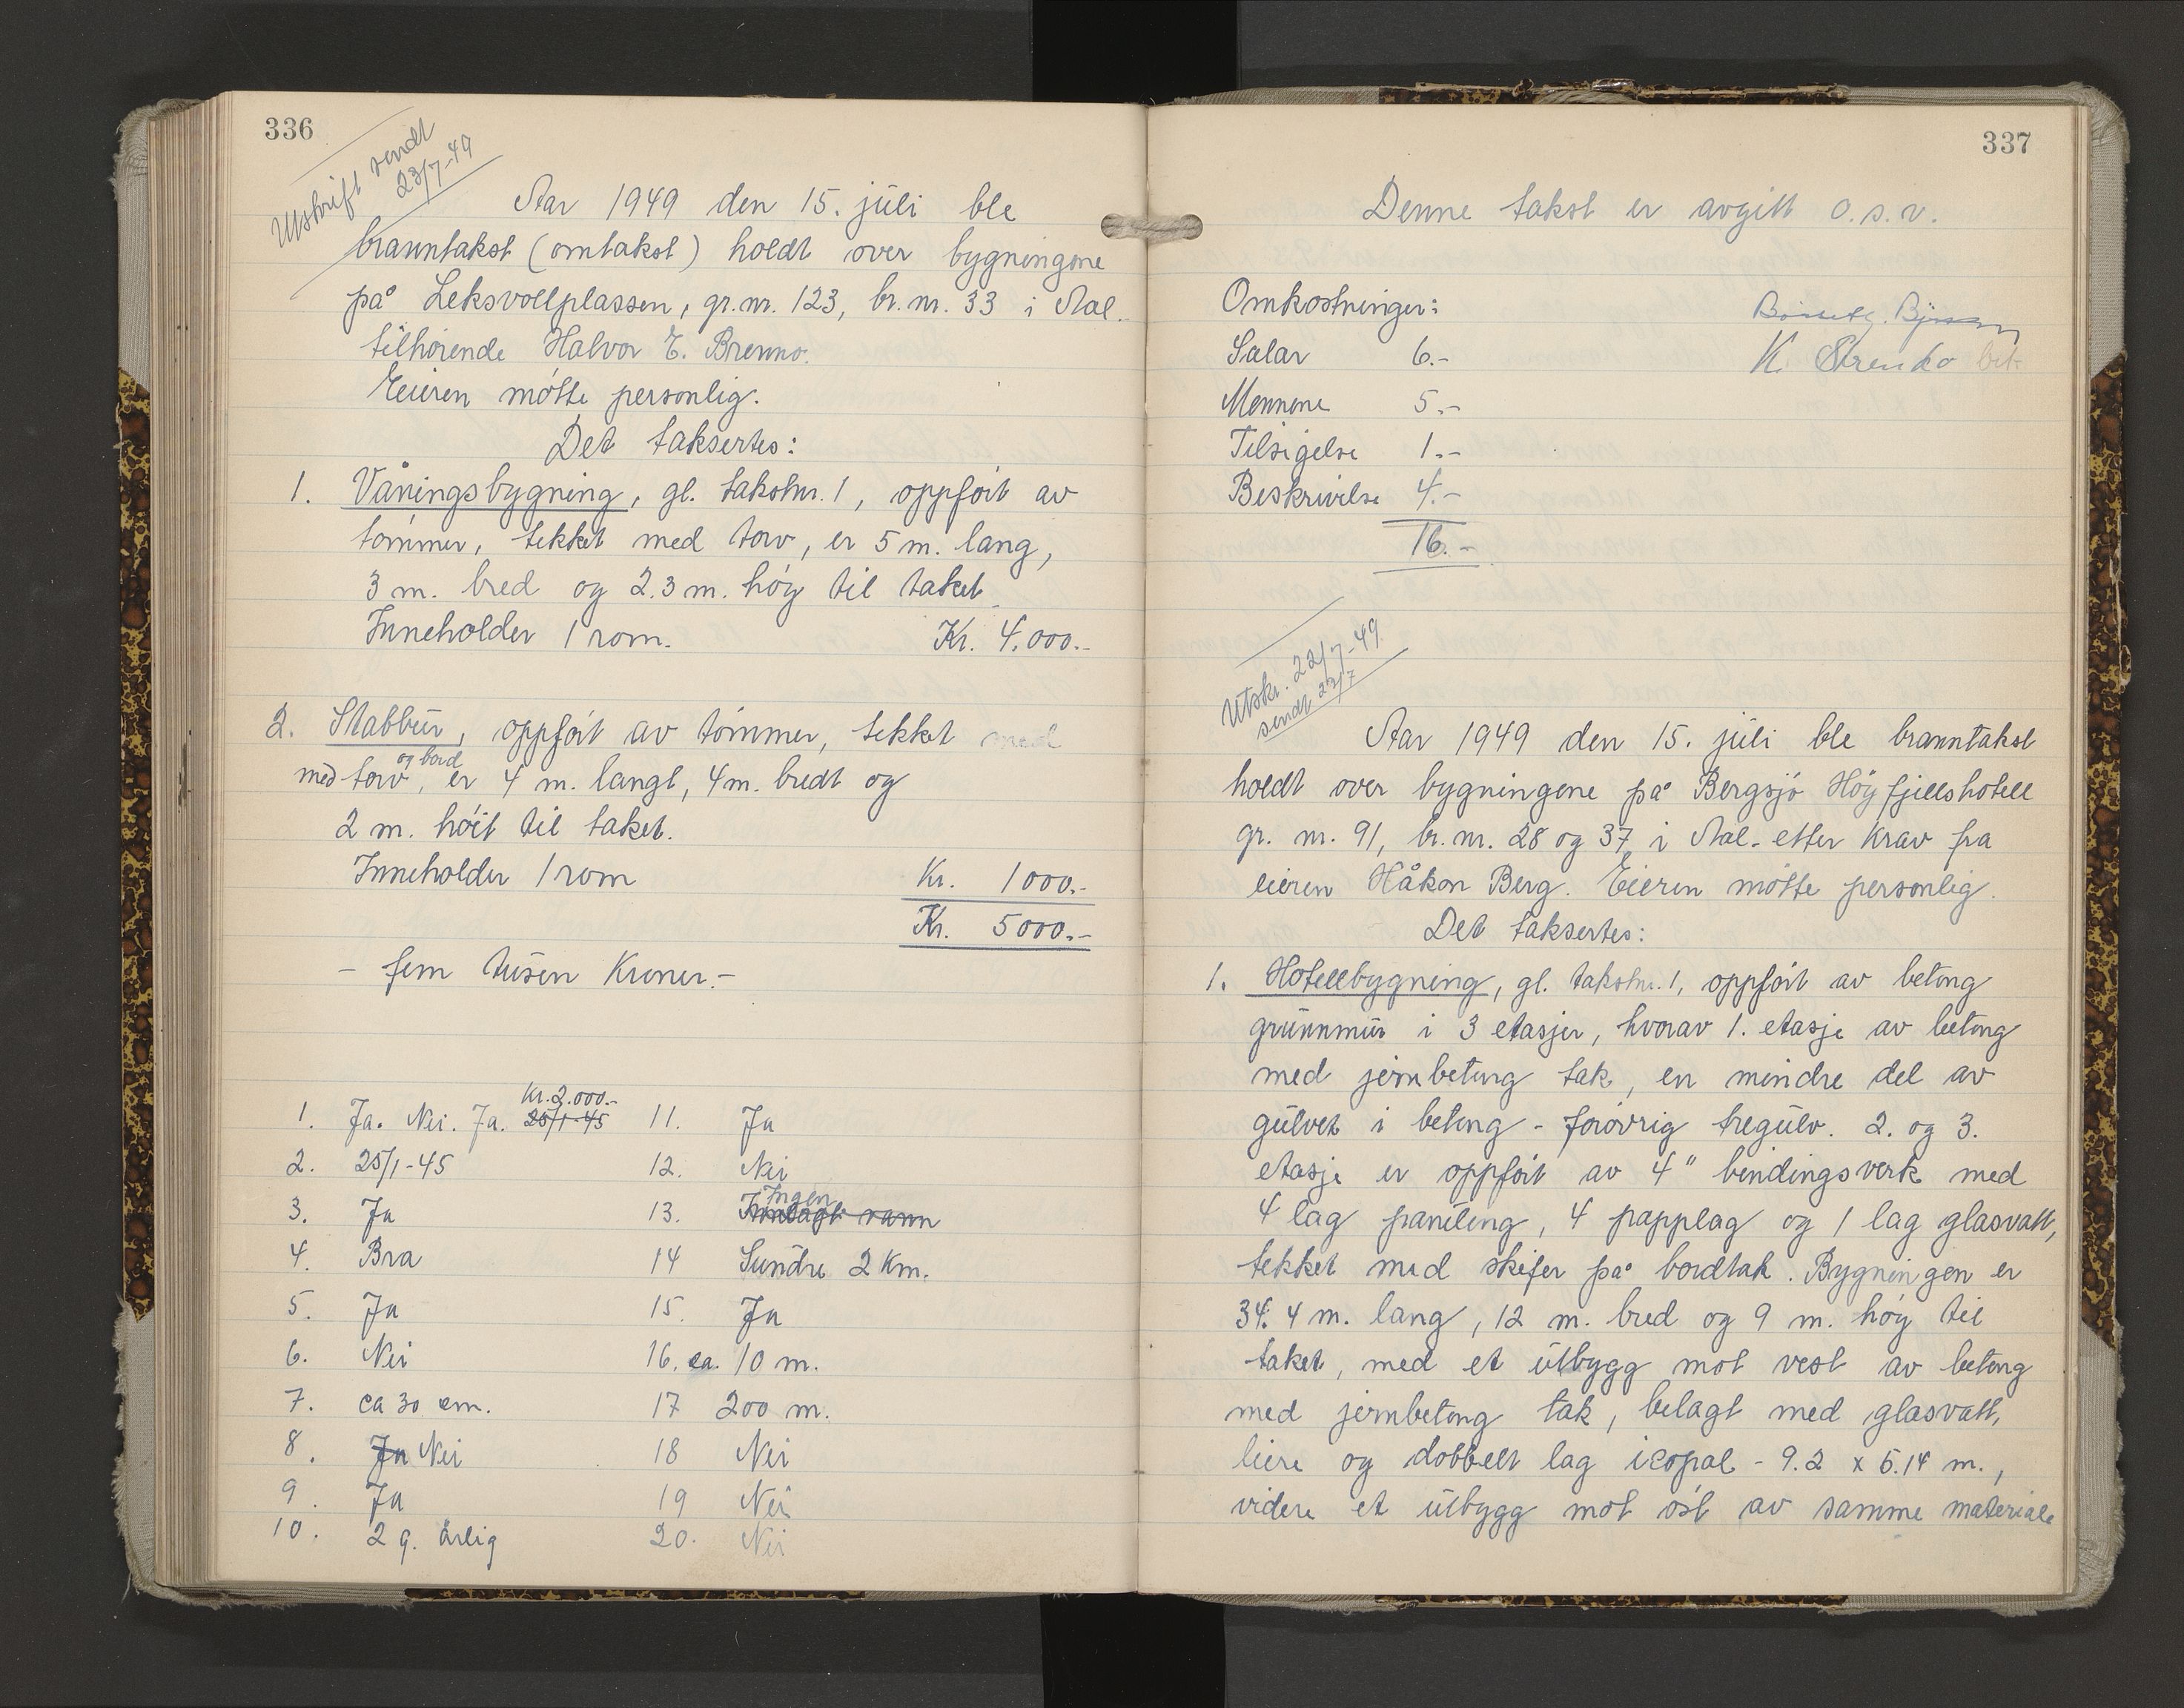 336
Utskrift sendt
23/7-49
Aar 1949 den 15. júli ble
branntakst (omtakst) holdt over bygningene
på Leksvollplassen, gr.nr. 123, br.nr. 33 i Aal.
tilhørende Halvor E. Brenno.
Eieren møtte personlig.
Det taksertes:
1. Våningsbygning, gl. takstnr. 1, oppført av
tømmer, tekket med torv, er 5 m. lang,
3 m. bred og 2.3 m. høg til taket.
Inneholder 1 rom. Kr. 4.000.-
2. Stabbur, oppført av tømmer, tekket med
og bord
med torv, er 4 m. langt, 4 m. bredt og
2 m. høit til taket.
Inneholder 1 rom Kr. 1000.-
Kr. 5000.-
- fem tusen Kroner.-
Kr. 2.000.-
1. Ja. Nei. Ja. 25/1-45 11. Ja
2. 25/1-45 12. Nei
Ingen
3. Ja 13. Innlagt vann
4. Bra 14 Sundre 2 Km.
5. Ja 15. Ja
6. Nei 16. ca. 10 m.
7. ca 30 cm. 17 200 m.
8. Ja Nei 18 Nei
9. Ja 19 Nei
10. 2 g. årlig 20. Nei
337
Denne takst er avgitt o.s.v.
Omkostninger:
Salar 6.-
K. Strenko
Mennene 5.-
Tilsigelse 1.-
Beskrivelse 4.-
16.-
Utskr. 22/7-49
sendt 22/7
Aar 1949 den 15. júli ble branntakst
holdt over bygningene på Bergsjø Høyfjellshotell
gr. nr. 91, br.nr. 28 og 37 i Aal. etter krav fra
eieren Håkon Berg. Eieren møtte personlig.
Det taksertes:
1. Hotellbygning, gl. takstnr. 1, oppført av betong
grunnmur i 3 etasjer, hvorav 1. etasje av betong
med jernbetong tak, en mindre del av
gulvet i betong - forøvrig tregulv. 2. og 3.
etasje er oppført av 4" bindingsverk med
4 lag paneling, 4 papplag og 1 lag glasvatt,
tekket med skifer på bordtak. Bygningen er
34.4 m. lang, 12 m. bred og 9 m. høg til
taket, med et utbygg mot vest av betong
med jernbetong tak, belagt med glasvatt,
leire og dobbelt lag icopal - 9.2 x 5.14 m.,
videre et utbygg mot øst av samme materiale